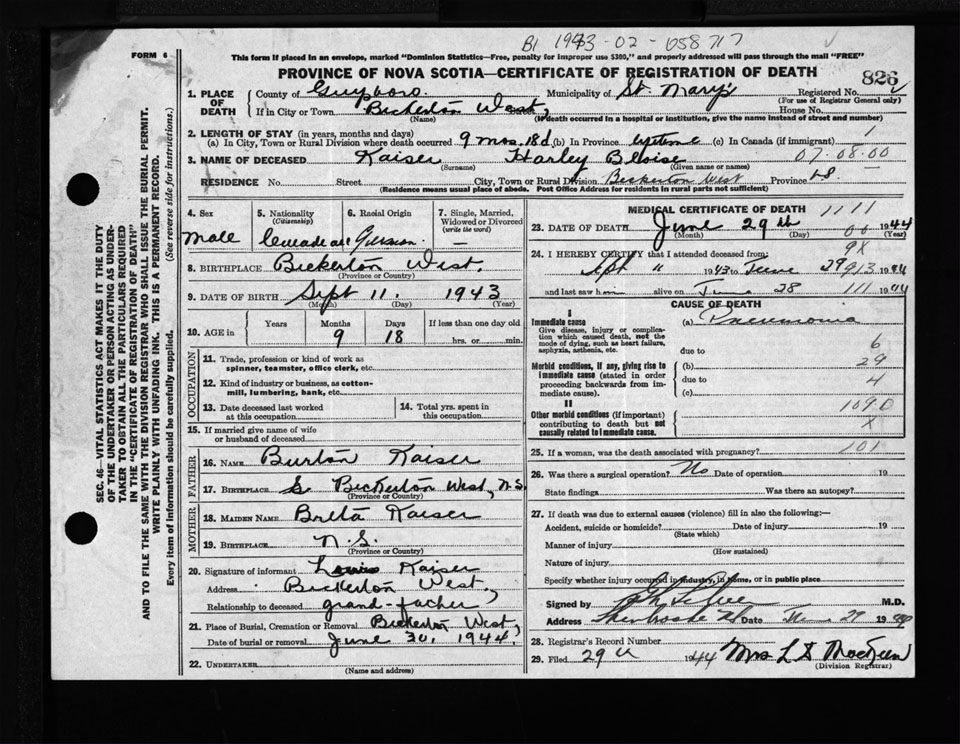 B1 1943-02-058717
FORM 6
This form if placed in an envelope, marked "Dominion Statistics—Free, penalty for improper use $300," and properly addressed will pass through the mail "FREE"
PROVINCE OF NOVA SCOTIA—CERTIFICATE OF REGISTRATION OF DEATH
826
SEC. 46—VITAL STATISTICS ACT MAKES IT THE DUTY
OF THE UNDERTAKER OR PERSON ACTING AS UNDER-
TAKER TO OBTAIN ALL THE PARTICULARS REQUIRED
IN THE "CERTIFICATE OF REGISTRATION OF DEATH"
AND TO FILE THE SAME WITH THE DIVISION REGISTRAR WHO SHALL ISSUE THE BURIAL PERMIT.
WRITE PLAINLY WITH UNFADING INK. THIS IS A PERMANENT RECORD.
Every item of information should be carefully supplied. (See reverse side for instructions.)
1. PLACE OF DEATH
County of Guysboro. Municipality of St. Mary's Registered No.
(For use of Registrar General only)
If in City or Town Bickerton West, House No.
(Name) (If death occurred in a hospital or institution, give the name instead of street and number)
2. LENGTH OF STAY (in years, months and days)
(a) In City, Town or Rural Division where death occurred 9 mos. 18 d. (b) In Province lifetime (c) In Canada (if immigrant) 1
3. NAME OF DECEASED Kaiser Harley Bloise 07.08.00
(Surname) (Given name or names)
RESIDENCE No. Street City, Town or Rural Division Bickerton West Province NS
(Residence means usual place of abode. Post Office Address for residents in rural parts not sufficient)
4. Sex
Male
5. Nationality
(Citizenship)
Canadian
6. Racial Origin
German
7. Single, Married,
Widowed or Divorced
(write the word)
—
8. BIRTHPLACE Bickerton West.
(Province or Country)
9. DATE OF BIRTH Sept 11. 1943
(Month) (Day) (Year)
10. AGE in
Years Months Days If less than one day old
9 18 hrs. or min.
OCCUPATION
11. Trade, profession or kind of work as
spinner, teamster, office clerk, etc.
12. Kind of industry or business, as cotton-
mill, lumbering, bank, etc.
13. Date deceased last worked
at this occupation
14. Total yrs. spent in
this occupation
15. If married give name of wife
or husband of deceased
FATHER
16. NAME Burton Kaiser
17. BIRTHPLACE Bickerton West, N.S.
(Province or Country)
MOTHER
18. MAIDEN NAME Breta Kaiser
19. BIRTHPLACE N.S.
(Province or Country)
20. Signature of informant Louis Kaiser
Address Bickerton West,
Relationship to deceased grand-father
21. Place of Burial, Cremation or Removal Bickerton West,
Date of burial or removal June 30, 1944,
22. UNDERTAKER
(Name and Address)
MEDICAL CERTIFICATE OF DEATH 1111
23. DATE OF DEATH June 29th 1944
(Month) (Day) (Year)
24. I HEREBY CERTIFY that I attended deceased from: 9X
Sept 11 1943 to June 29 1944
and last saw him alive on June 28 1944
CAUSE OF DEATH
I
Immediate cause
Give disease, injury or complica-
tion which caused death, not the
mode of dying, such as heart failure,
asphyxia, asthenia, etc.
(a) Pneumonia
due to 6
Morbid conditions, if any, giving rise to
immediate cause (stated in order
proceeding backwards from im-
mediate cause).
(b) 29
due to 4
(c)
II
Other morbid conditions (if important)
contributing to death but not
causally related to immediate cause.
1090
X
25. If a woman, was the death associated with pregnancy? 101
26. Was there a surgical operation? No Date of operation 19
State findings Was there an autopsy?
27. If death was due to external causes (violence) fill in also the following:—
Accident, suicide or homicide? Date of injury 19
(State which)
Manner of injury
(How sustained)
Nature of injury
Specify whether injury occurred in industry, in home, or in public place
Signed by M.D.
Address Sherbrooke Date June 29 1944
28. Registrar's Record Number
29. Filed 29th 1944 Mrs L D MacKeen
(Division Registrar)